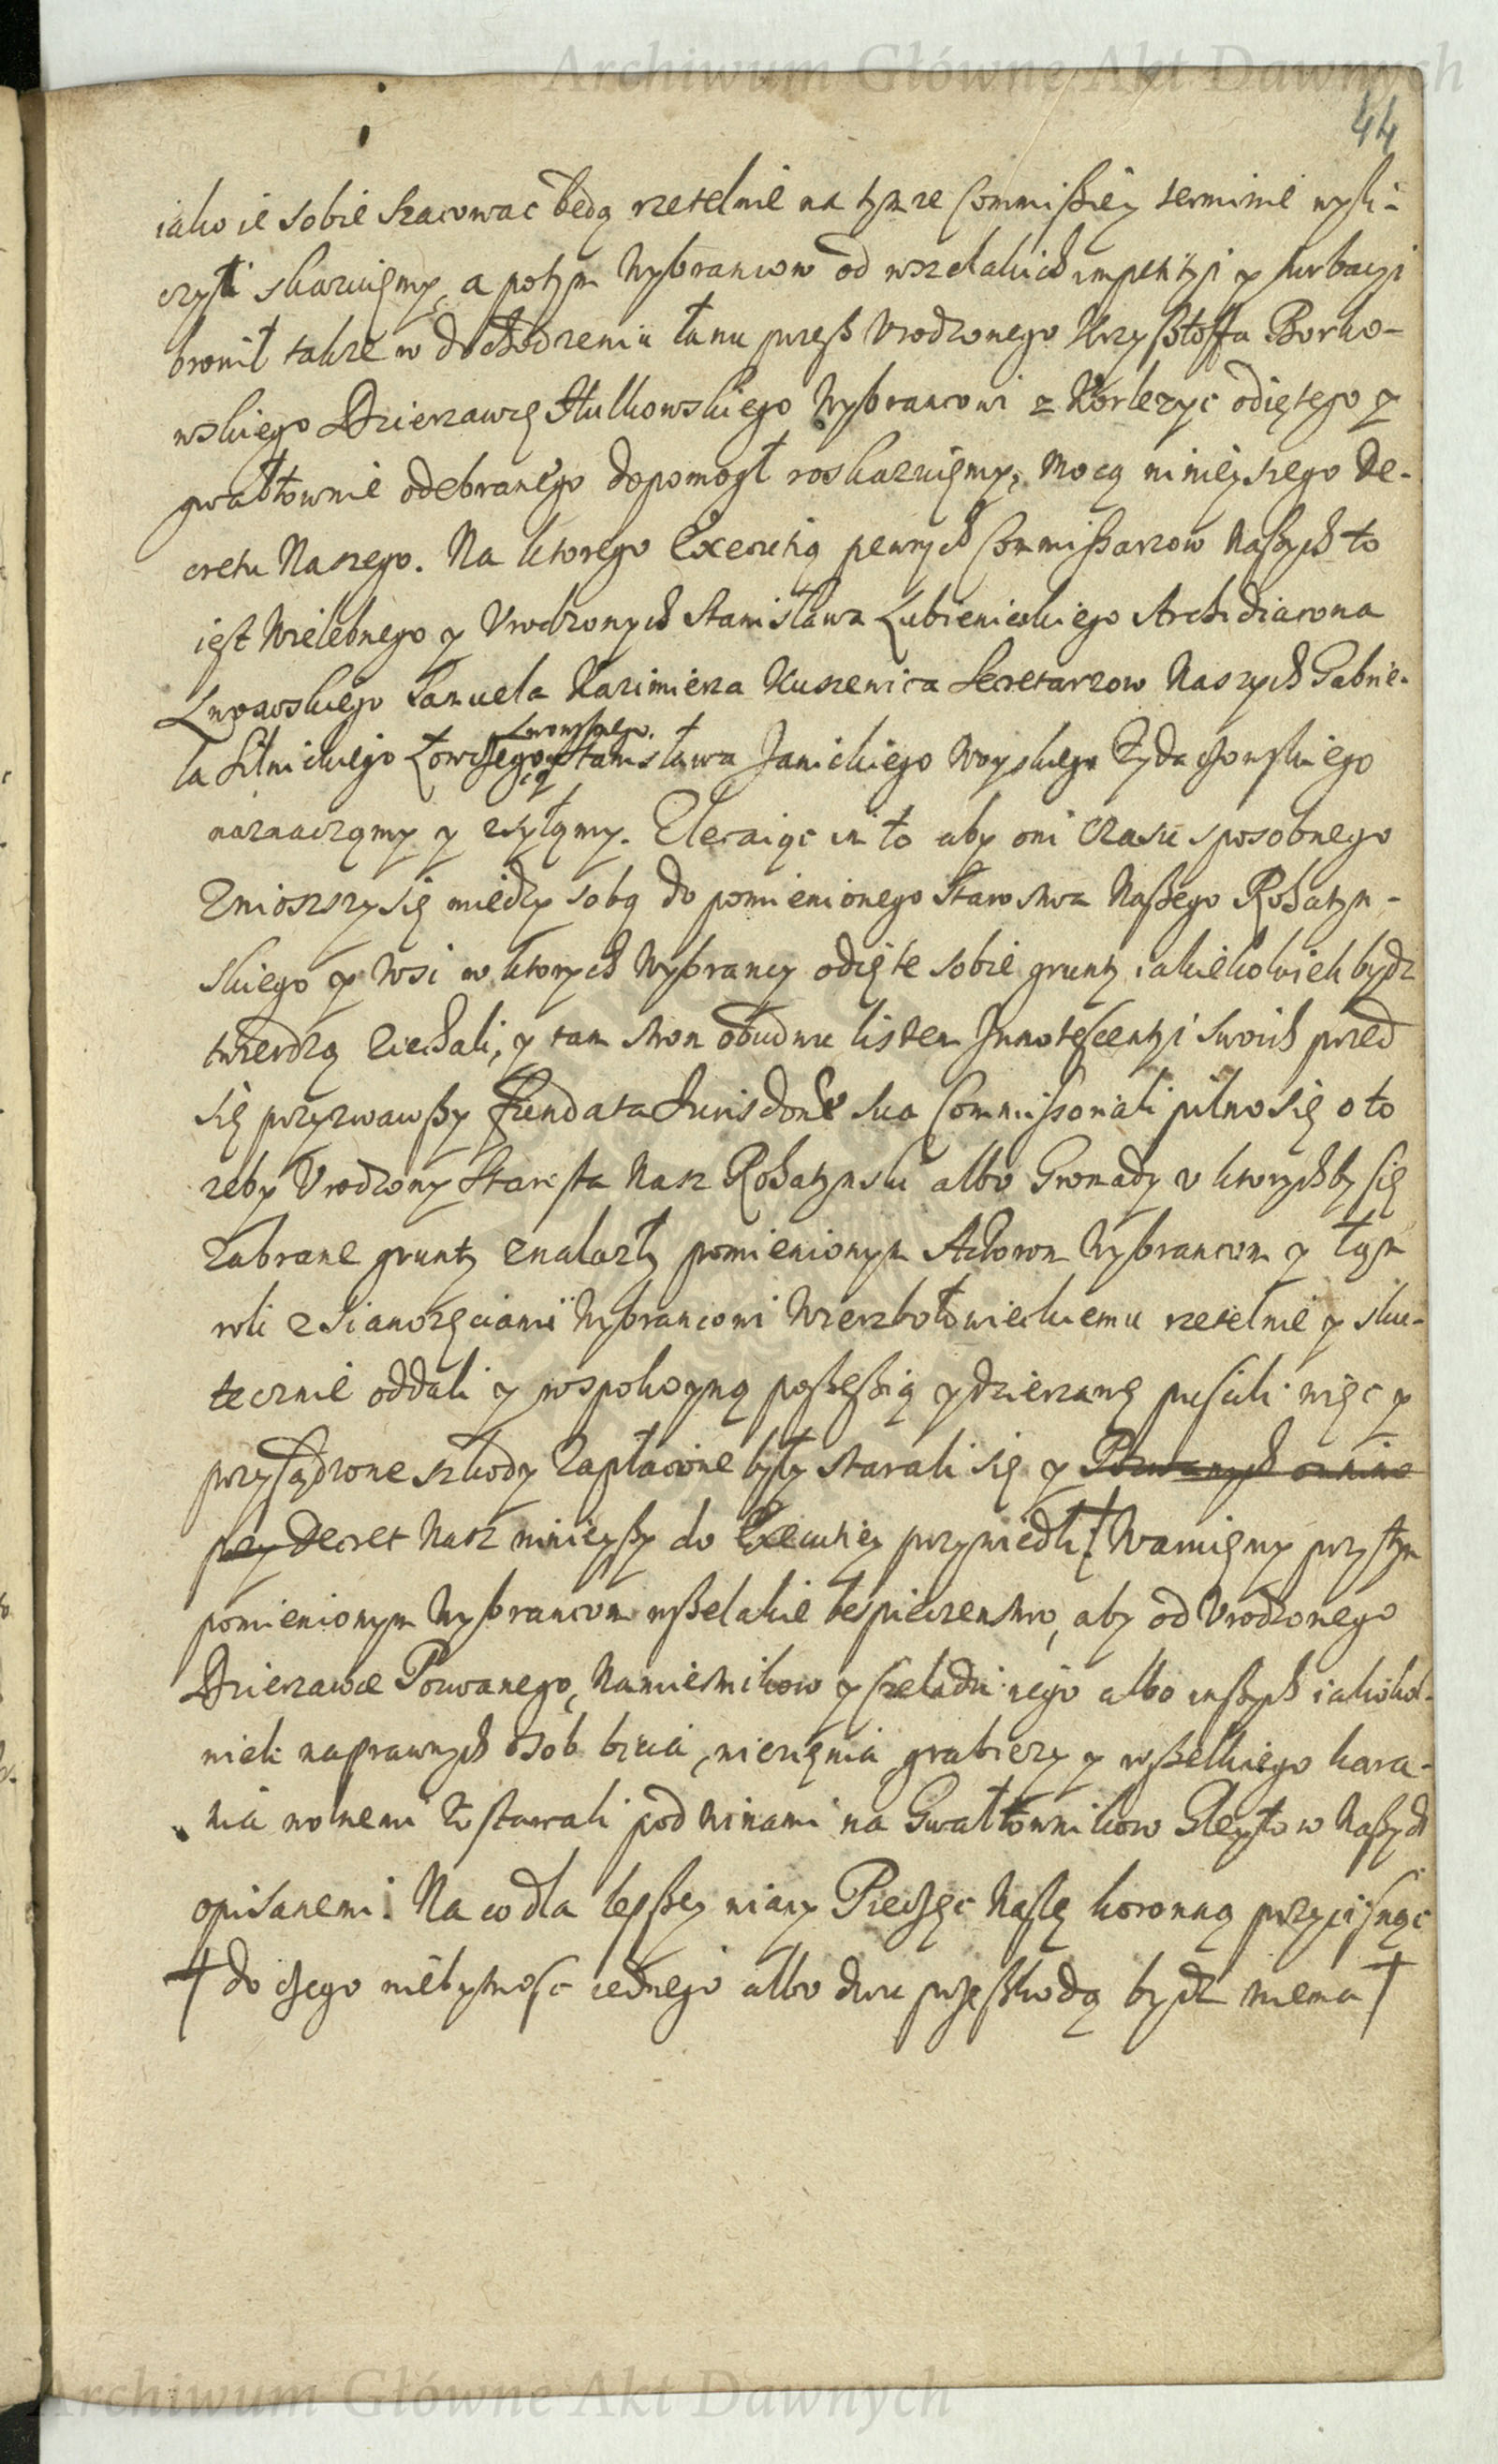 Archiwum Główne Akt Dawnych
44
iako ie sobie szacowac będą rzetelnie na tymze Commißiey terminie wyli-
czyli skazuięmy, a potym Wybrancow od wszelakich impetityi y turbacyi
bronił także w dochodzeniu łanu przeß Vrodzonego Krzyßtoffa Borko-
wskiego Dzierzawcę Stulkowskiego Wybrancowi z Korlezyc odiętego y
gwałtownie odebranego dopomogł roskazuięmy, Mocą ninieyszego De-
cretu Naszego. Na ktorego Executią pewnych Commißarzow Naßych to
iest Wielebnego y Vrodzonych Stanisława Lubienieckiego Archidiacona
Lwowskiego Samuela Kazimierza Kuszewica Secretarzow Naszych Gabrie-
Lwowskiego
la Silnickiego Łowczego y Stanisława Janickiego Woyskiego Zydaczowskiego
naznaczamy y zsyłamy. Zlecaiąc im to aby oni czasu sposobnego
Znioszszy się miedzy sobą do pomienionego Starostwa Naßego Rohatyn-
skiego y Wsi w ktorych Wybrancy odięte sobie grunty iakiekolwiek bydz
twierdzą ziechali, y tam stron obudwu listem Innotescentyi swoich przed
się przyzwawßy fundata Jurisdone sua Commißoriali pilno się o to
zeby Vrodzony Starosta Nasz Rohatynski albo Gromady v ktorychby się
zabrane grunty znalazły pomienionym Actorom Wybrancom y tym
roli z sianozęciami Wybrancowi Wierzbołowieckiemu rzetelnie y sku-
tecznie oddali y wspokoyną poßeßią y dzierzawę puscili więc y
przysądzone szkody zapłacone były starali się y Pozwanych omnino
przy Decret Nasz ninieyßy do Executiey przywiedli † Waruięmy przytym
pomienionym Wybrancom wßelakie bespieczenstwo, aby od Vrodzonego
Dzierzawce Pozwanego, Namiesnikow y Czeladzi iego albo inßych iakokol-
wiek naprawnych osob bicia, więzięnia grabiezy y wßelkiego kara-
nia wolnemi zostawali pod winami na Gwałtownikow Gleytow Naßych
opisanemi. Na co dla lepßey wiary Pieczęc Naßę koronną przycisnąc
† do czego niebytnosc iednego albo dwu przeßkodą bydz niema †
Archiwum Główne Akt Dawnych